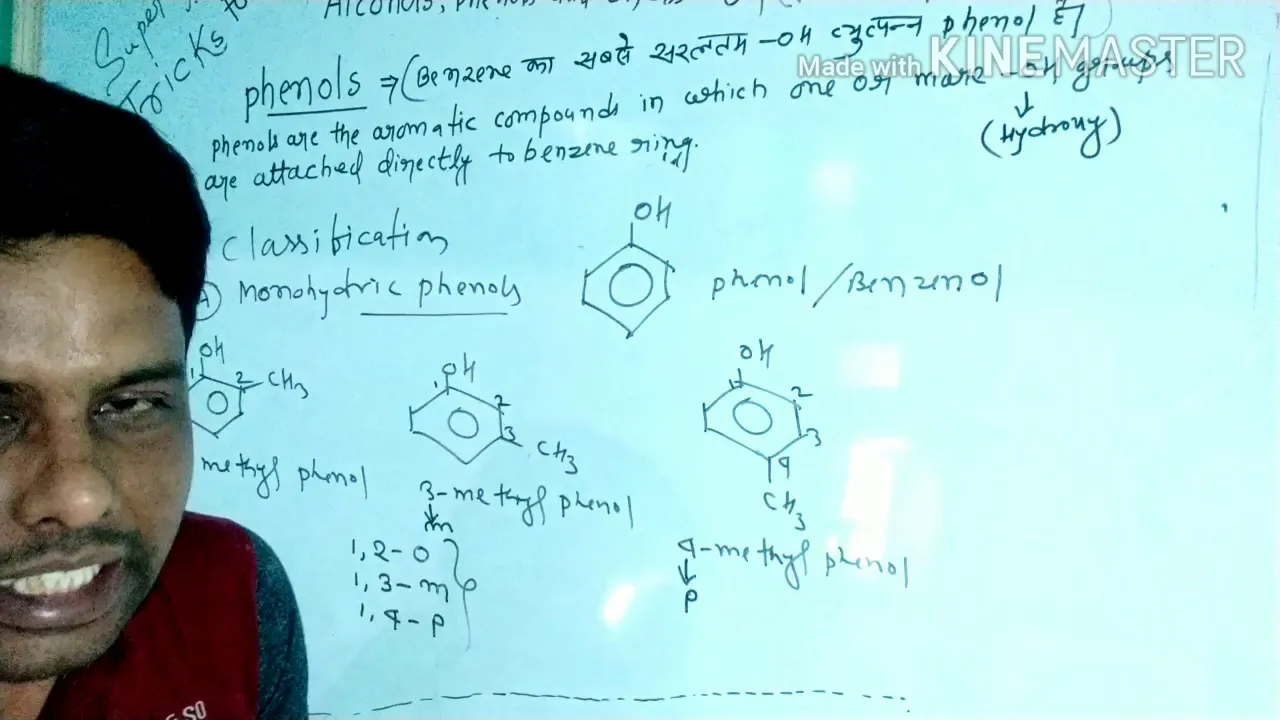 Alcohols, phenols and
Super
Tricks to
Made with KINEMASTER
phenols ⇒ (Benzene का सबसे सरलतम -OH व्युत्पन्न phenol है)
phenols are the aromatic compounds in which one or more -OH groups
(Hydroxy)
are attached directly to benzene ring.
Classification
OH
A) Monohydric phenols
phenol/Benzenol
OH
1
2
CH3
methyl phenol
OH
1
2
3
CH3
3-methyl phenol
m
OH
1
2
3
4
CH3
4-methyl phenol
p
1,2- o
1,3- m
1,4- p
SO